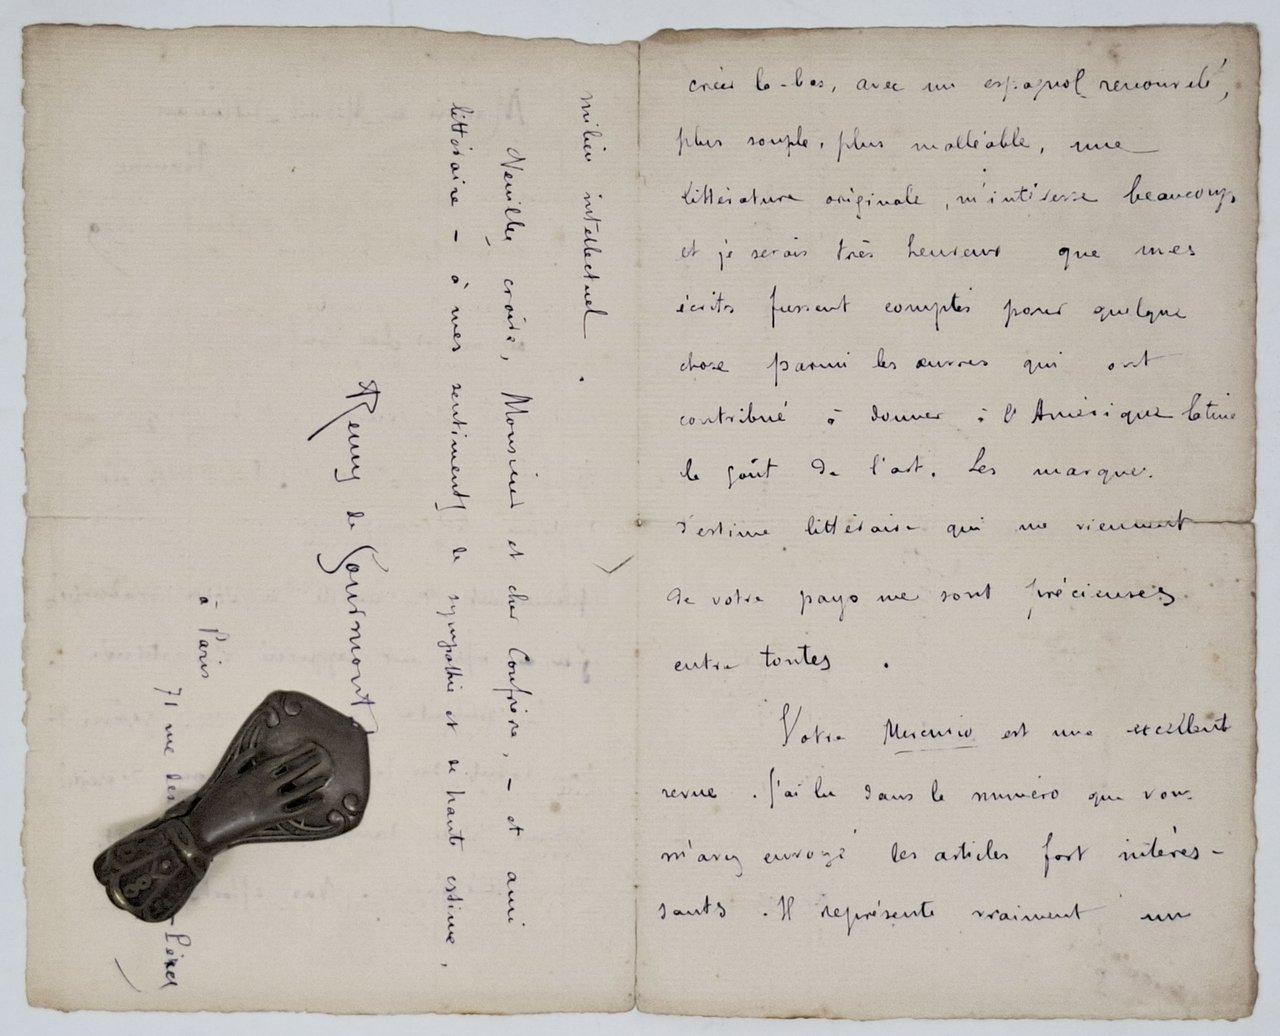 créer là-bas, avec un espagnol renouvelé,
plus souple, plus malléable, une
littérature originale, m'intéresse beaucoup,
et je serais très heureux que mes
écrits fussent comptés pour quelque
chose parmi les œuvres qui ont
contribué à donner à l'Amérique latine
le goût de l'art. Les marques
d'estime littéraire qui me viennent
de votre pays me sont précieuses
entre toutes.
Votre Mercurio est une excellent
revue. J'ai lu dans le numéro que vous
m'avez envoyé des articles fort intéres-
sants. Il représente vraiment un
milieu intellectuel.
Veuillez croire, Monsieur et cher Confrère, – et ami
littéraire – à mes sentiments de sympathie et de haute estime,
Remy de Gourmont
à Paris
71 rue des -Pères